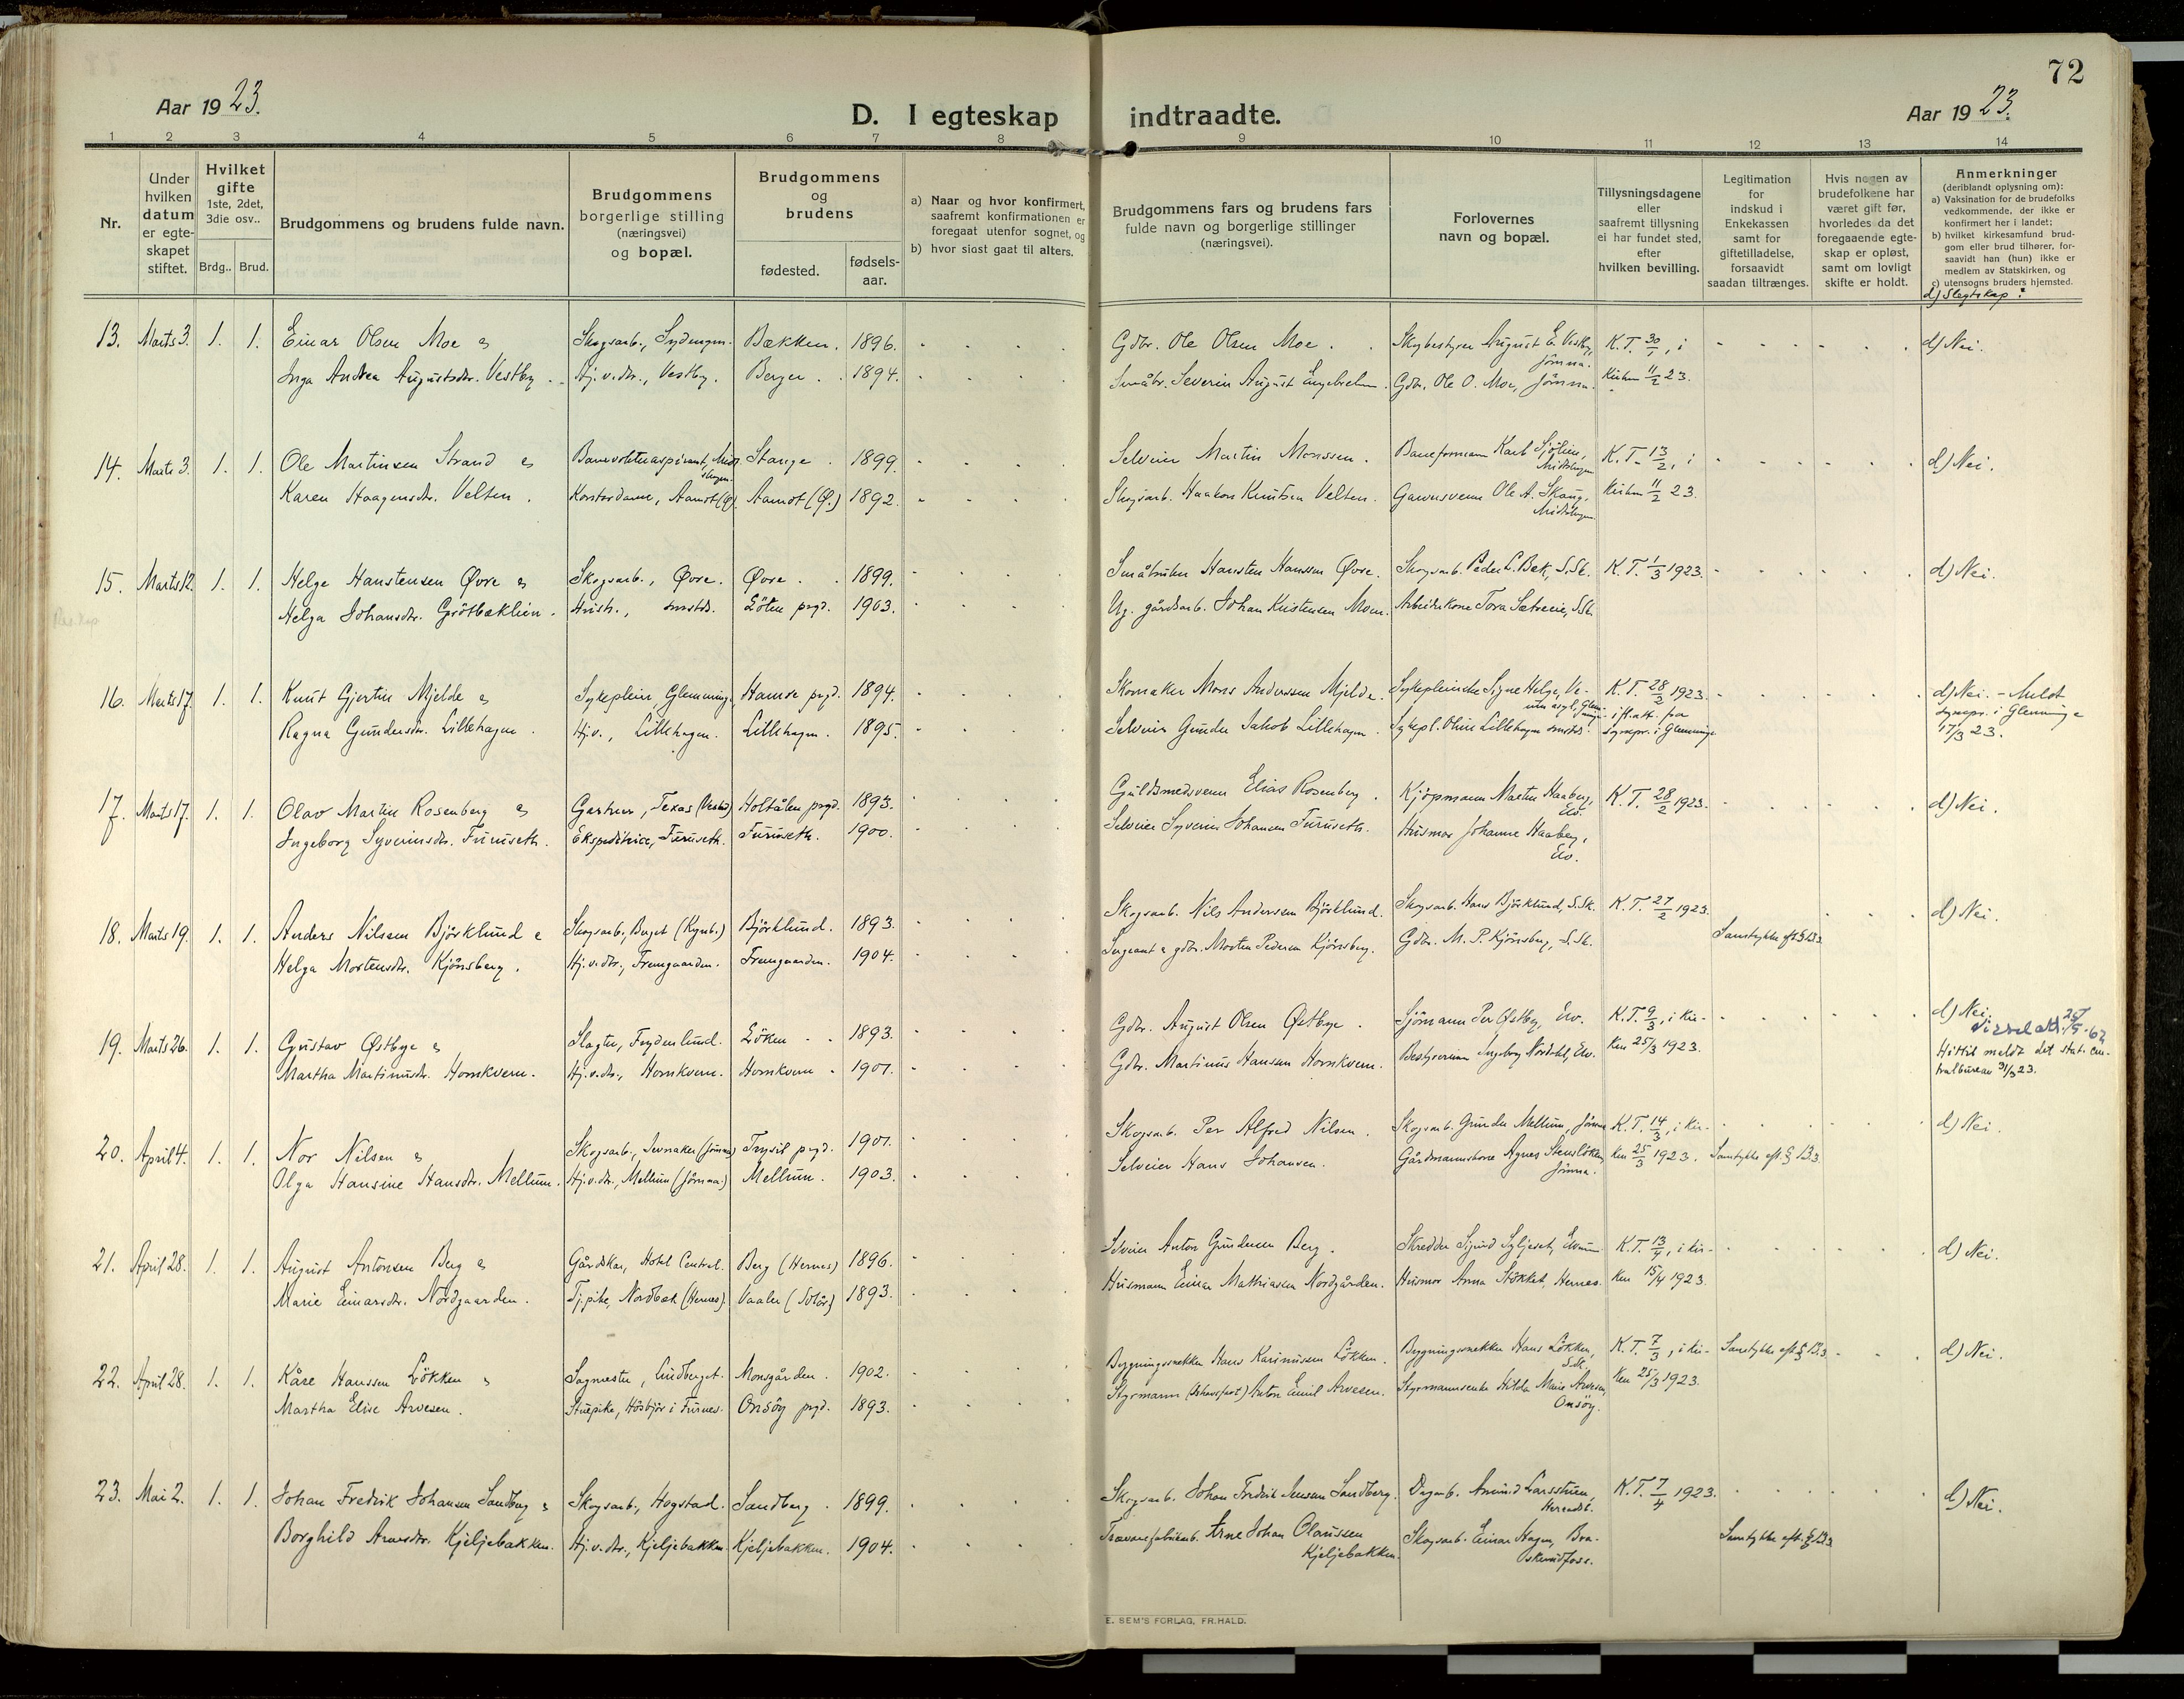 72
Aar 1923.
D. I egteskap indtraadte.
Aar 1923.
1 2 3 4 5 6 7 8 9 10 11 12 13 14
Nr.
Under hvilken datum er egteskapet stiftet.
Hvilket gifte 1ste, 2det, 3die osv..
Brdg.. Brud.
Brudgommens og brudens fulde navn.
Brudgommens borgerlige stilling (næringsvei) og bopæl.
Brudgommens og brudens
fødested.
fødsels-aar.
a) Naar og hvor konfirmert, saafremt konfirmationen er foregaat utenfor sognet, og
b) hvor sidst gaat til alters.
Brudgommens fars og brudens fars fulde navn og borgerlige stillinger (næringsvei).
Forlovernes navn og bopæl.
Tillysningsdagene eller saafremt tillysning ei har fundet sted, efter hvilken bevilling.
Legitimation for indskud i Enkekassen samt for giftetilladelse, forsaavidt saadan tiltrænges.
Hvis nogen av brudefolkene har været gift før, hvorledes da det foregaaende egteskap er opløst, samt om lovligt skifte er holdt.
Anmerkninger
(deriblandt oplysning om):
a) Vaksination for de brudefolks vedkommende, der ikke er konfirmert her i landet;
b) hvilket kirkesamfund brudgom eller brud tilhører, forsaavidt han (hun) ikke er medlem av Statskirken, og
c) utensogns bruders hjemsted.
d) Slegtskap?
13. Marts 3. 1. 1. Einar Olsen Moe & Skogsarb., Bækken. 1896. Gdbr. Ole Olsen Moe. Skogbestyrer August E. Vestby, Jömna. K.T. 30/1, i d) Nei.
Inga Andrea Augustsdtr. Vestby. Hj.v.dtr., Vestby. Berger. 1894. Småbr. Severin August Engebretsen. Gdbr. Ole O. Moe, Jömna. Kirken 11/2 23.
14. Marts 3. 1. 1. Ole Martinsen Strand & Banevokteraspirant, Stange. 1899. Selveier Martin Monssen. Baneformann Karl Sjölien, Midtskogen K.T. 13/2, i d) Nei.
Karen Haagensdtr. Velten. Kontordame, Aamot (Ø). Aamot (Ø.) 1892. Skogsarb. Haakon Knutsen Velten. Ole A. Skaug, Midtskogen. Kirken 11/2 23.
15. Marts 12. 1. 1. Helge Hanstensen Øvre & Skogsarb., Øvre. Øvre. 1899. Småbruker Hansten Hanssen Øvre. Skogsarb. Peder L. Bek, S.Sk. K.T. 1/3 1923. d) Nei.
Helga Johansdtr. Grötbæklien. Hush., smstds. Löten prgd. 1903. Ug. gårdsarb. Johan Kristensen Moen. Arbeiderkone Tora Sætreeie, S.Sk.
16. Marts 17. 1. 1. Knut Gjertin Mjelde & Sykepleier, Glemminge. Hamre prgd. 1894. Skomaker Mons Anderssen Mjelde. Sykepleierske Signe Helge, Ve- K.T. 28/2 1923. d) Nei. - Meldt
Ragna Gundersdtr. Lillehagen. Hj.v., Lillehagen. Lillehagen. 1895. Selveier Gunder Jakob Lillehagen. Sykepl. Oline Lillehagen smstds. ifl. att. fra sognepr. i Glemminge sognepr. i Glemminge 17/3 23.
17. Marts 17. 1. 1. Olav Martin Rosenberg & Gartner, Texas Holtålen prgd. 1893. Guldsmedsvenn Elias Rosenberg. Kjöpmann Martin Haaberg, Elv. K.T. 28/2 1923. d) Nei.
Ingeborg Syverinsdtr. Furuseth. Ekspeditrice, Furuseth. Furuseth. 1900. Selveier Syverin Johansen Furuseth. Husmor Johanne Haaberg, Elv.
18. Marts 19. 1. 1. Anders Nilsen Björklund & Skogsarb., Berget (Kynb.) Björklund. 1893. Skogsarb. Nils Anderssen Björklund. Skogsarb. Hans Björklund, S.Sk. K.T. 27/2 1923. d) Nei.
Helga Mortensdtr. Kjönsberg. Hj.v.dtr., Fremgaarden. Fremgaarden. 1904. Sergeant & gdbr. Morten Pedersen Kjönsberg. Gdbr. M. P. Kjönsberg, S.Sk. Samtykke eft. § 13.3.
19. Marts 26. 1. 1. Gustav Østbye & Slagter, Frydenlund. Löken 1893. Gdbr. August Olsen Østbye. Sjömann Per Østby, Elv. K.T. 9/3, i kir- d) Nei.
Martha Martinusdtr. Hornkvern. Hj.v.dtr., Hornkvern. Hornkvern 1901. Gdbr. Martinus Hansen Hornkvern. Bestyrerinne Ingeborg Nordahl, Elv. ken 25/3 1923. meldt det stat. cen-tralbureau 31/3 23.
20. April 4. 1. 1. Nor Nilsen & Skogsarb., (Jömna) Trysil prgd. 1901. Skogsarb. Per Alfred Nilsen. Skogsarb. Gunder Mellum, Jömna K.T. 14/3, i kir- d) Nei.
Olga Hansine Hansdtr. Mellum. Hj.v.dtr., Mellum (Jömna.) Mellum. 1903. Selveier Hans Johansen. Gårdmannskone Agnes Stenslökken, Jömna. ken 25/3 1923. Samtykke eft. § 13.3.
21. April 28. 1. 1. August Antonsen Berg & Gårdskar, Hotel Central. Berg (Hernes) 1896. Selveier Anton Gundersen Berg. Skredder Sigurd Syljeset, Elverum K.T. 13/4, i kir- d) Nei.
Marie Einarsdtr. Nordgaarden. Tj.pike, Nordbæk (Hernes). Vaaler (Solör) 1893. Husmann Einar Mathiasen Nordgården. Husmor Anna Stökket, Hernes. ken 15/4 1923.
22. April 28. 1. 1. Kåre Hanssen Lökken & Sagmester, Lindberget. Monsgården. 1902. Bygningssnekker Hans Karinussen Lökken. Bygningssnekker Hans Lökken, S.Sk. K.T. 7/3, i kir- Samtykke eft. § 13.3. d) Nei.
Martha Elise Arvesen. Stuepike, Hösbjör i Furnes. Onsöy prgd. 1893. Styrmann Anton Emil Arvesen. Styrmannsenke Hilda Marie Arvesen, Onsöy. ken 25/3 1923.
23. Mai 2. 1. 1. Johan Fredrik Johansen Sandberg & Skogsarb., Hogstad. Sandberg. 1899. Skogsarb. Johan Fredrik Jensen Sandberg. Amund Larsstuen, K.T. 7/4 1923. d) Nei.
Borghild Arnesdtr. Kjeljebakken. Hj.v.dtr., Kjeljebakken Kjeljebakken. 1904. Arne Johan Olaussen Kjeljebakken. Skogsarb. Einar Hagen, Bra-skereidfoss. Samtykke eft. § 13.3.
E. SEM'S FORLAG, FR.HALD.